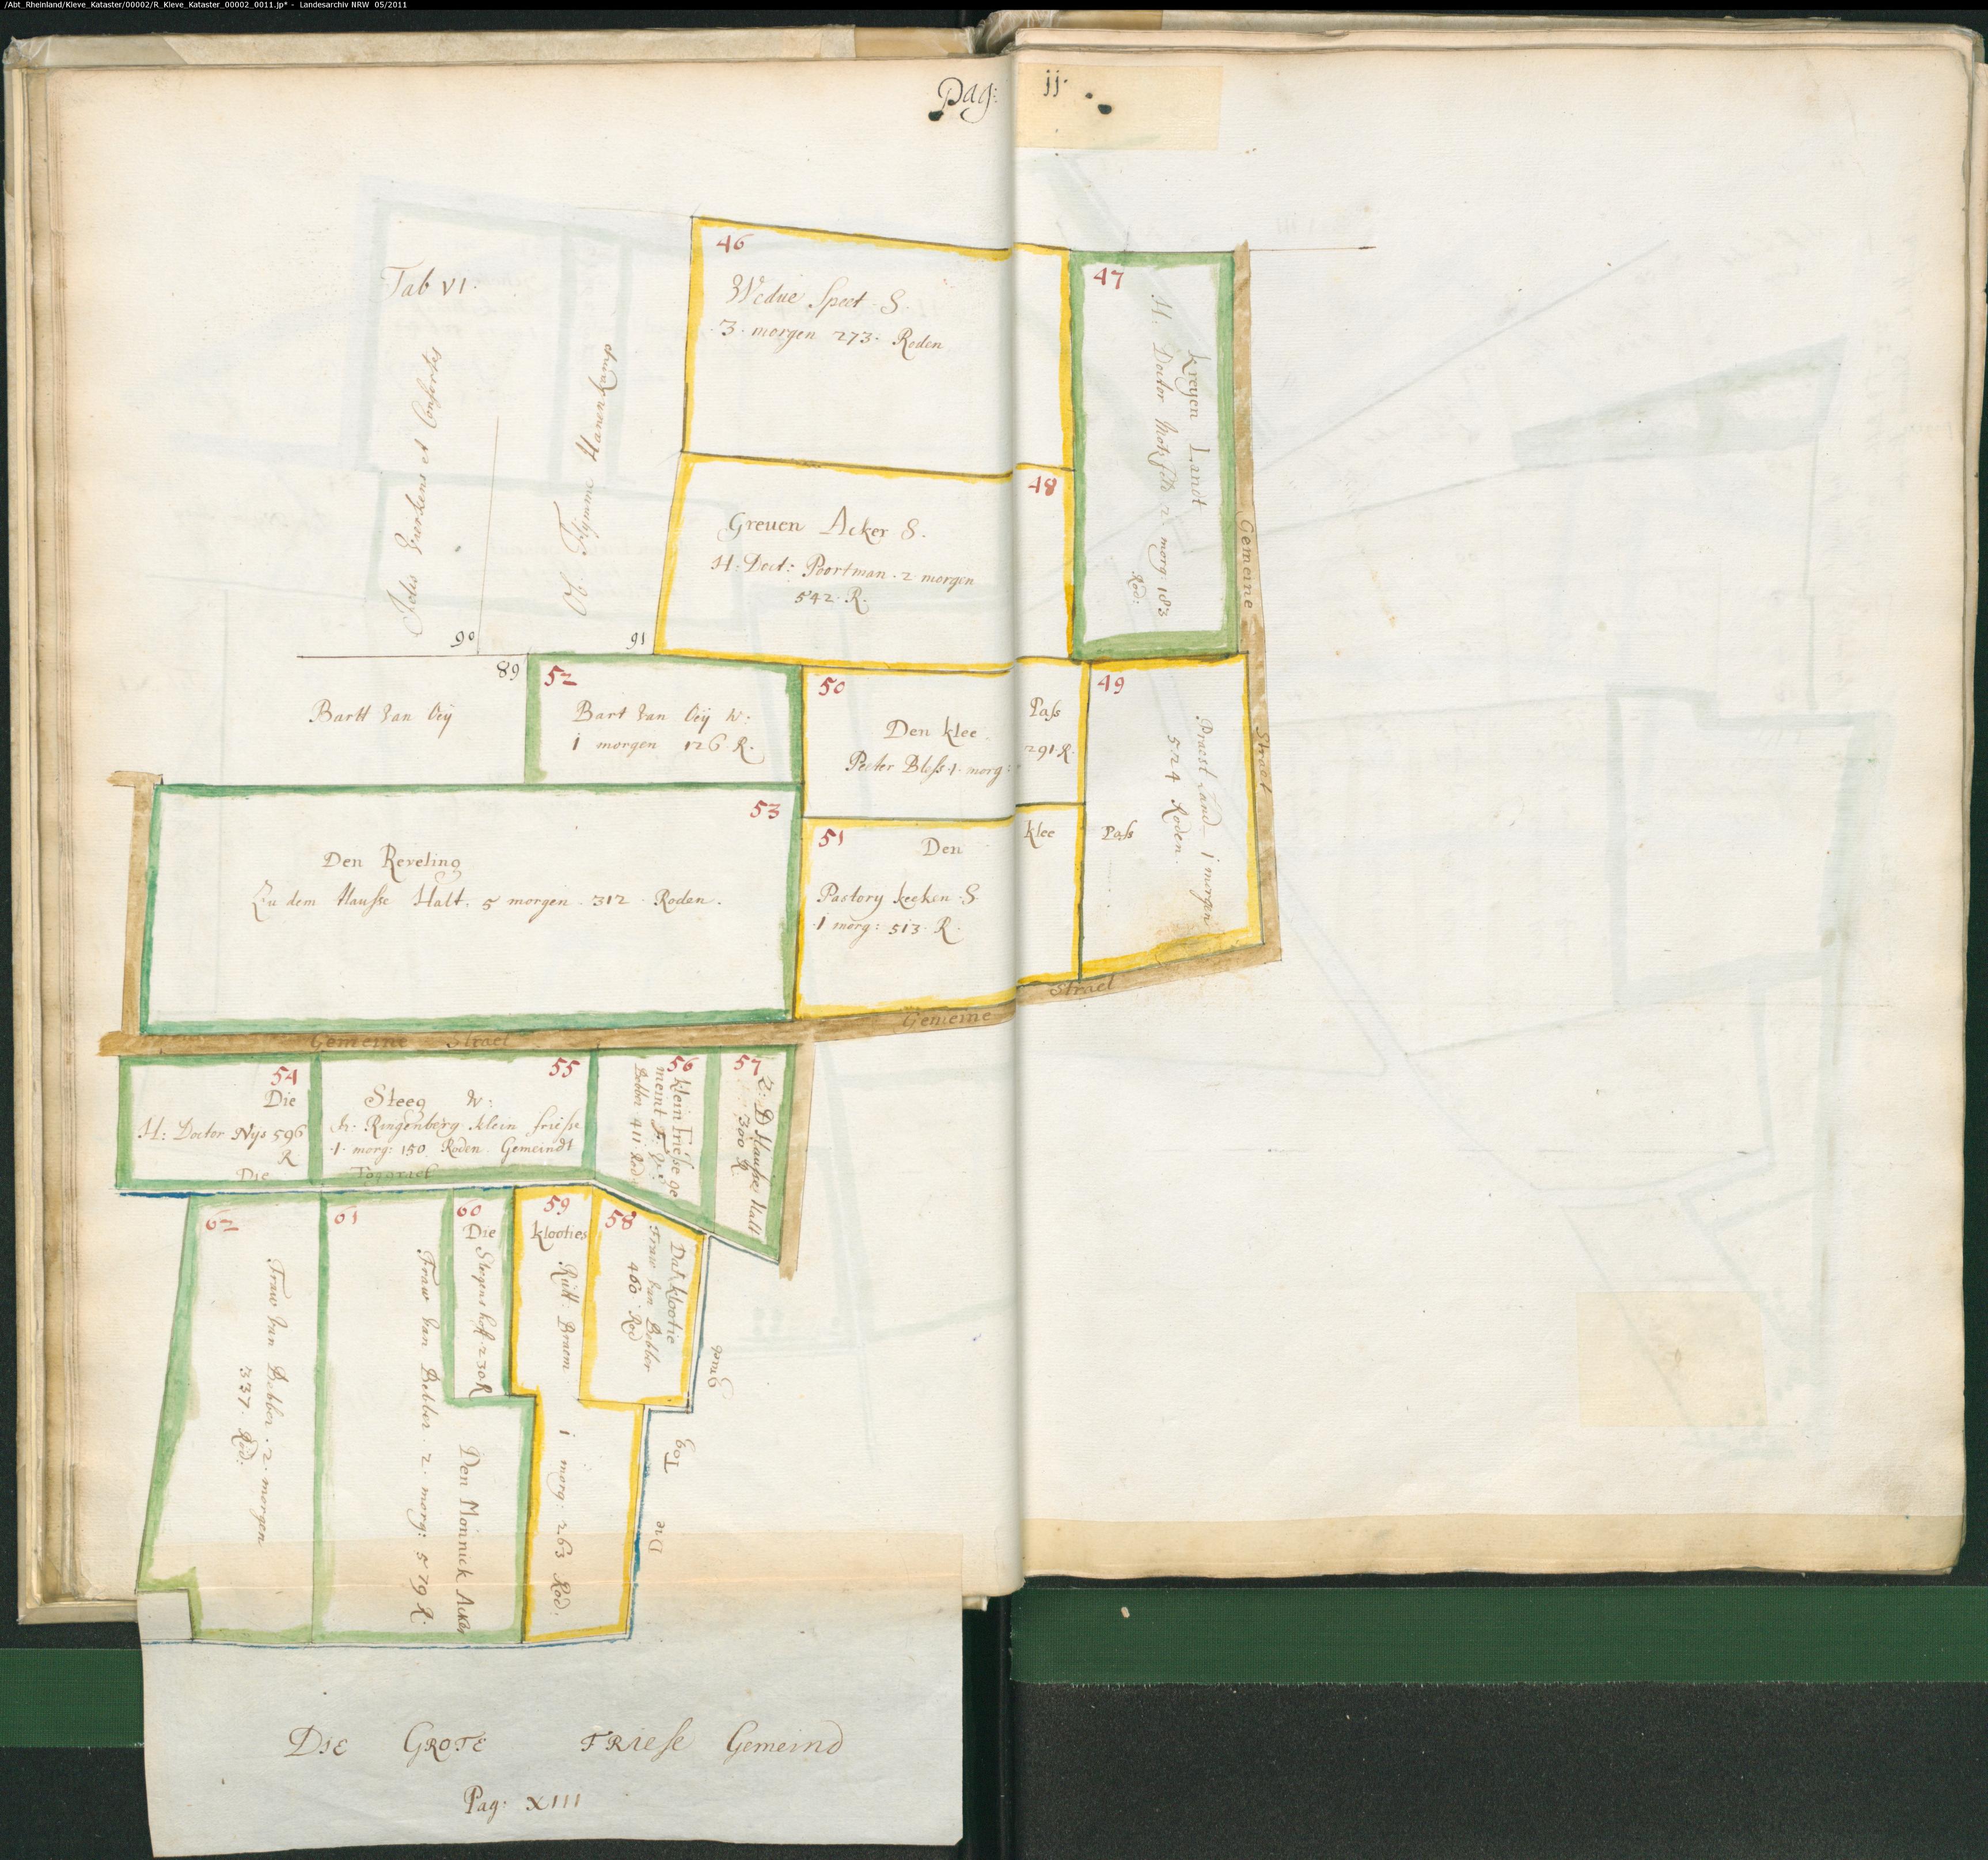 /Abt_Rheinland/Kleve_Kataster/00002/R_Kleve_Kataster_00002_0011.jp* - Landesarchiv NRW 05/2011
Pag: jj.
Tab VI.
et Consortes
90
Hanenkamp
91
46
Wedue Spect S.
3. morgen 273. Roden
47
Kreyen Landt
H. Doctor 2. morg. 183
Rod:
48
Greuen Acker S.
H: Doct: Poortman. 2 morgen
542. R.
Gemeine Straet
89
Bartt van Oÿ
52
Bart van Oÿ W:
1 morgen 126. R.
50
Den klee Pass
Peeter Bloss. 1. morg: 291. R.
49
Praest Land 1 morgen
524 Roden.
53
Den Reveling
Zu dem Hausse Halt. 5 morgen. 312. Roden.
51
Den klee Pass
Pastory keeken. S.
1 morg: 513. R.
Gemeine Straet
Gemeine Straet
54
Die
H: Doctor Nijs 596
R
Die
55
Steeg W:
Ringenberg klein friesse
1. morg: 150. Roden. Gemeindt
Toggraef
56
klein friesse ge
meint F. V:
Bebber 411 Rod
57
Z: D Hausse Halt
300 R
62
Fraw van Bebber. 2. morgen
337. Rod:
61
Den Monnick Acker
Fraw van Bebber. 2. morg: 579 R.
60
Die
Stegens hoff. 230 R
59
klooties
Rütt. Braem. 1 morg. 263 Rod:
58
Dat klootie
Fraw van Bebber
460. Rod
Die Tog Graeb
DIE GROTE FRIESE Gemeind
Pag: XIII